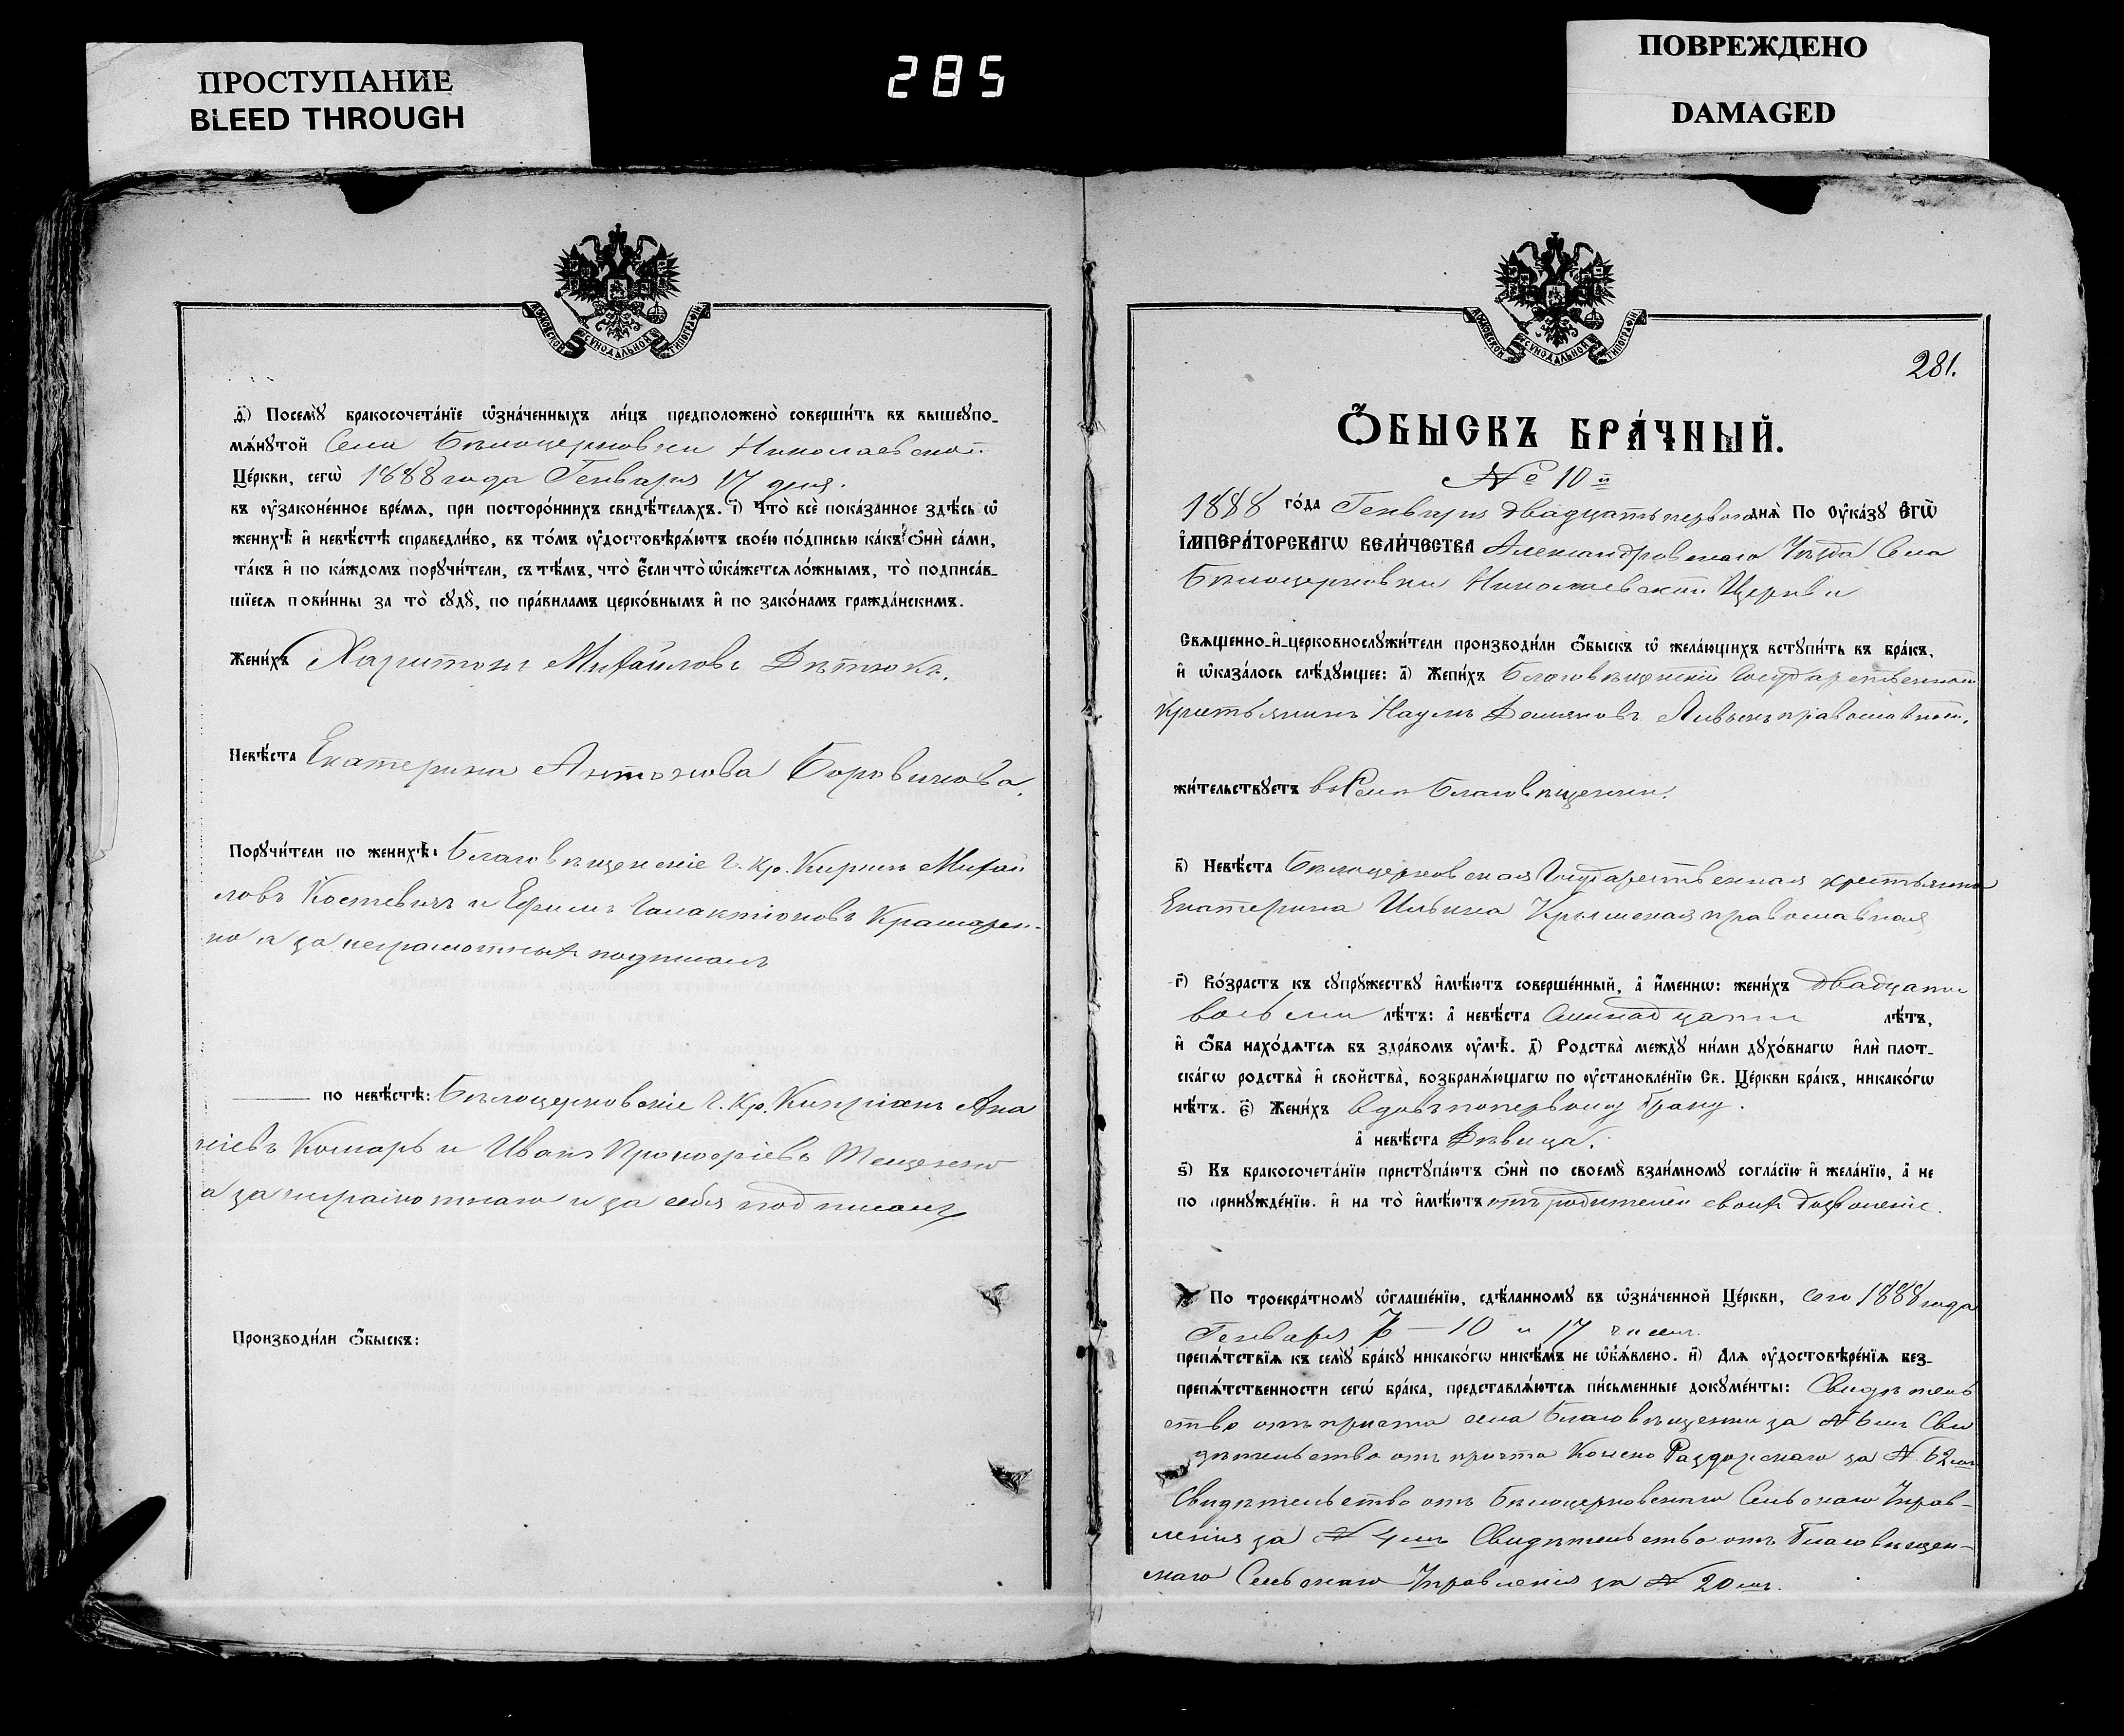 ПРОСТУПАНИЕ
BLEED THROUGH
285
ПОВРЕЖДЕНО
DAMAGED
МОСКОВСКОЙ СѴНОДАЛЬНОЙ ТИПОГРАФІИ
Посемꙋ̀ бракосочета́нїе ѡ҆зна́ченныхъ ли́цъ предположено̀ соверши́ть въ вышеꙋпо-
мѧ́нꙋтой Села Бѣлоцерковки Николаевской
Це́ркви, сегѡ̀ 1888 года Генваря 17 дня.
въ оу҆зако́ненное вре́мѧ, при посторо́ннихъ свидѣ́телѧхъ. і҃) Что̀ всѐ пока́занное здѣ́сь ѡ҆
женихѣ̀ и҆ невѣ́стѣ справедли́во, въ то́мъ оу҆достовѣрѧ́ютъ свое́ю по́дписью ка́къ ѻ҆нѝ са́ми,
та́къ и҆ по ка́ждомъ порꙋчи́тели, съ тѣ́мъ, что̀ є҆́сли что̀ ѡ҆ка́жетсѧ ло́жнымъ, то̀ подписа́в-
шїесѧ пови́нны за то̀ сꙋдꙋ̀, по пра́виламъ церко́внымъ и҆ по зако́намъ гражда́нскимъ.
Жени́хъ Харитонъ Михайловъ Дѣтюкъ.
Невѣ́ста Екатерина Антонова Боровикова.
Порꙋчи́тели по женихѣ̀: Благовѣщенскіе Г. Кр. Кирилъ Михай
ловъ Костевичъ и Ефимъ Галактіоновъ Крамарен-
ко а за неграмотныхъ подписалъ
по невѣ́стѣ: Бѣлоцерковскіе Г. Кр. Кипріянъ Ана
ніевъ Комарь и Иванъ Прокофіевъ
а за неграмотнаго и за себя подписалъ
Производи́ли ѻ҆́быскъ:
МОСКОВСКОЙ СѴНОДАЛЬНОЙ ТИПОГРАФІИ
281.
Ѻ҆́БЫСКЪ БРА́ЧНЫЙ.
№ 10 й
1888 го́да Генваря двадцать первого днѧ̀ По Оу҆ка́зꙋ ЕГѠ̀
І҆МПЕРА́ТОРСКАГѠ ВЕЛИ́ЧЕСТВА Александровского Уѣзда Села
Бѣлоцерковки Николаевской Церкви
Свѧщенно-и҆-церковнослꙋжи́тели производи́ли ѻ҆́быскъ ѡ҆ жела́ющихъ встꙋпи́ть въ бра́къ,
и҆ ѡ҆каза́лось слѣ́дꙋющее: а҃) Жени́хъ Благовѣщенскій Государственный
Крестьянинъ Наумъ Демяновъ православный.
жи́тельствꙋетъ въ Селѣ Благовѣщенкѣ.
в҃) Невѣ́ста Бѣлоцерковская Государственная крестьянка
Екатерина Ильина Крымская православная
г҃) Во́зрастъ къ сꙋпрꙋ́жествꙋ и҆мѣ́ютъ соверше́нный, а҆ и҆́менно: жени́хъ двадцати
восьми лѣ́тъ: а҆ невѣ́ста семнадцати лѣ́тъ,
и҆ ѻ҆́ба нахо́дѧтсѧ въ здра́вомъ оу҆мѣ̀. д҃) Родства̀ междꙋ̀ ни́ми дꙋхо́внагѡ и҆лѝ плот-
ска́гѡ родства̀ и҆ сво́йства̀, возбранѧ́ющагѡ по оу҆становле́нїю Св. Це́ркви бра́къ, никако́гѡ
нѣ́тъ. є҃) Жени́хъ вдовъ по первому браку.
а҆ невѣ́ста Дѣвица.
ѕ҃) Къ бракосочета́нїю пристꙋпа́ютъ ѻ҆нѝ по своемꙋ̀ взаи́мномꙋ согла́сїю и҆ жела́нїю, а҆ не
по принꙋжде́нїю. и҆ на то̀ и҆мѣ́ютъ отъ родителей своихъ дозволеніе.
По троекра́тномꙋ ѡ҆глаше́нїю, сдѣ́ланномꙋ въ ѡ҆зна́ченной Це́ркви, сего 1888 года
Генваря – 10 и 17 чиселъ.
препѧ́тствїѧ къ семꙋ̀ бра́кꙋ никако́гѡ никѣ́мъ не ѡ҆б̾ѧ́влено. и҃) Длѧ оу҆достовѣре́нїѧ без-
препѧ́тственности сегѡ̀ бра́ка, представлѧ́ютсѧ пи́сьменные докꙋме́нты: Свидѣтель
ство отъ причта села Благовѣщенки за № 6мъ Сви
дѣтельство отъ причта Конско Раздорскаго за № 62мъ
Свидѣтельство отъ Бѣлоцерковскаго Сельскаго Управ-
ленія за № 4мъ Свидѣтельство отъ Благовѣщен-
скаго Сельскаго Управленія за № 20мъ.